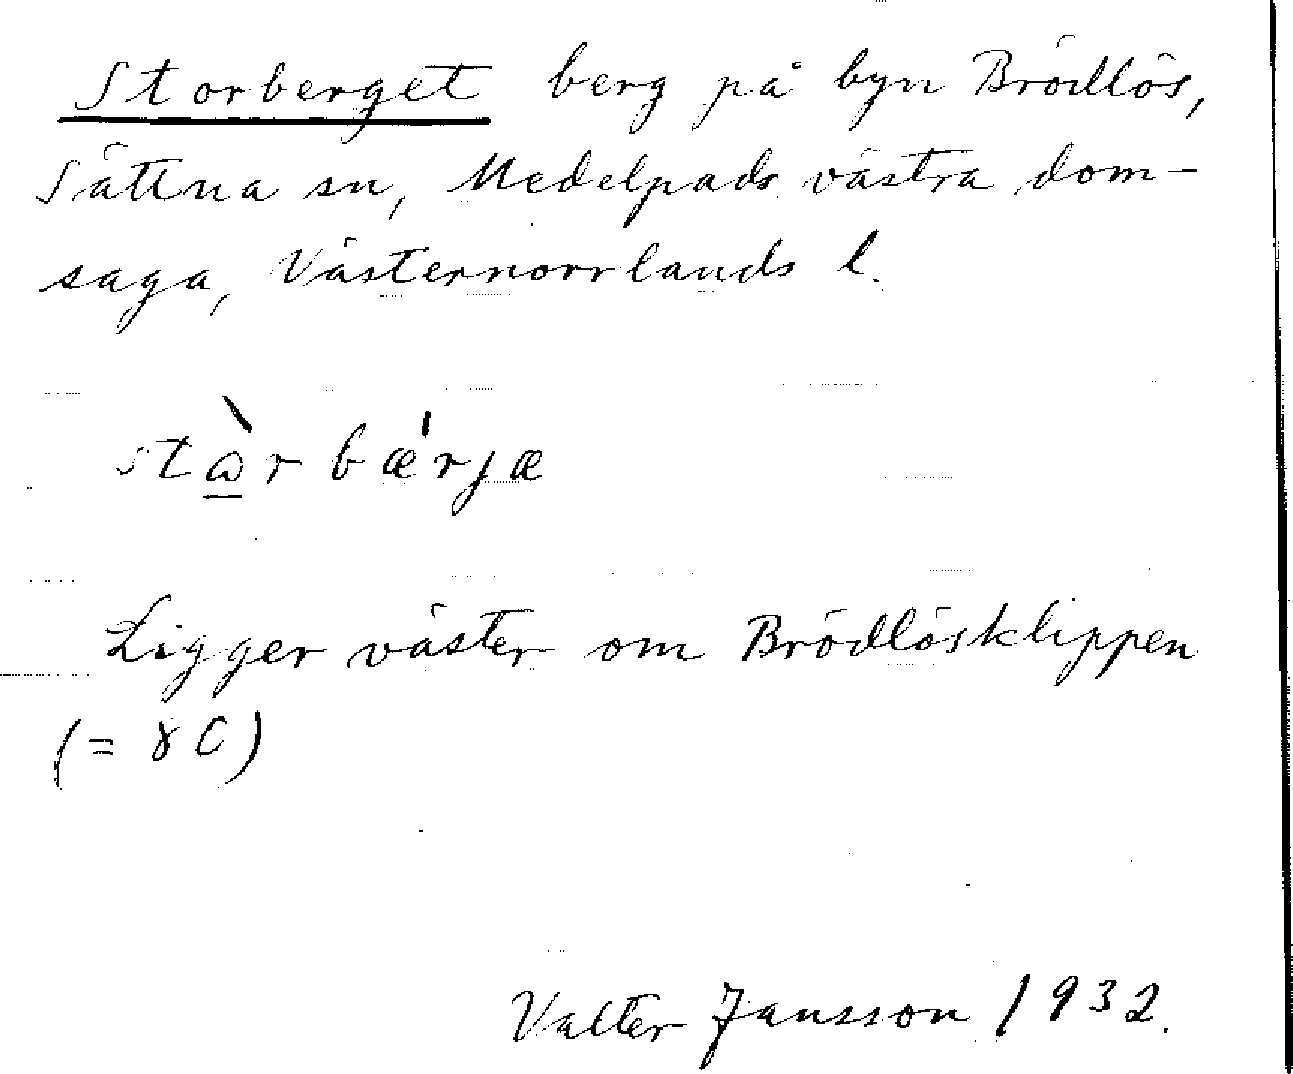 Storberget berg på byn Brödlös,
Sättna sn, Medelpads västra dom-
saga, Västernorrlands l.
stὼ̲r bæ̍rjæ
Ligger väster om Brödlösklippen
(= 8 C)
Valter Jansson 1932.